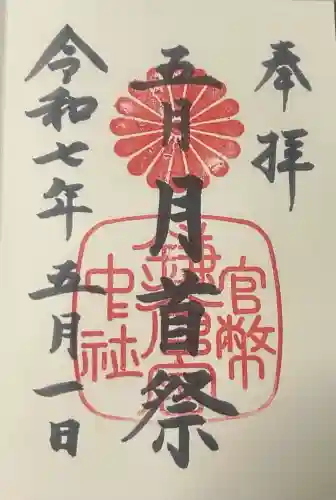 奉拝
五月
月首祭
官幣
鎌倉宮
中社
令和七年五月一日